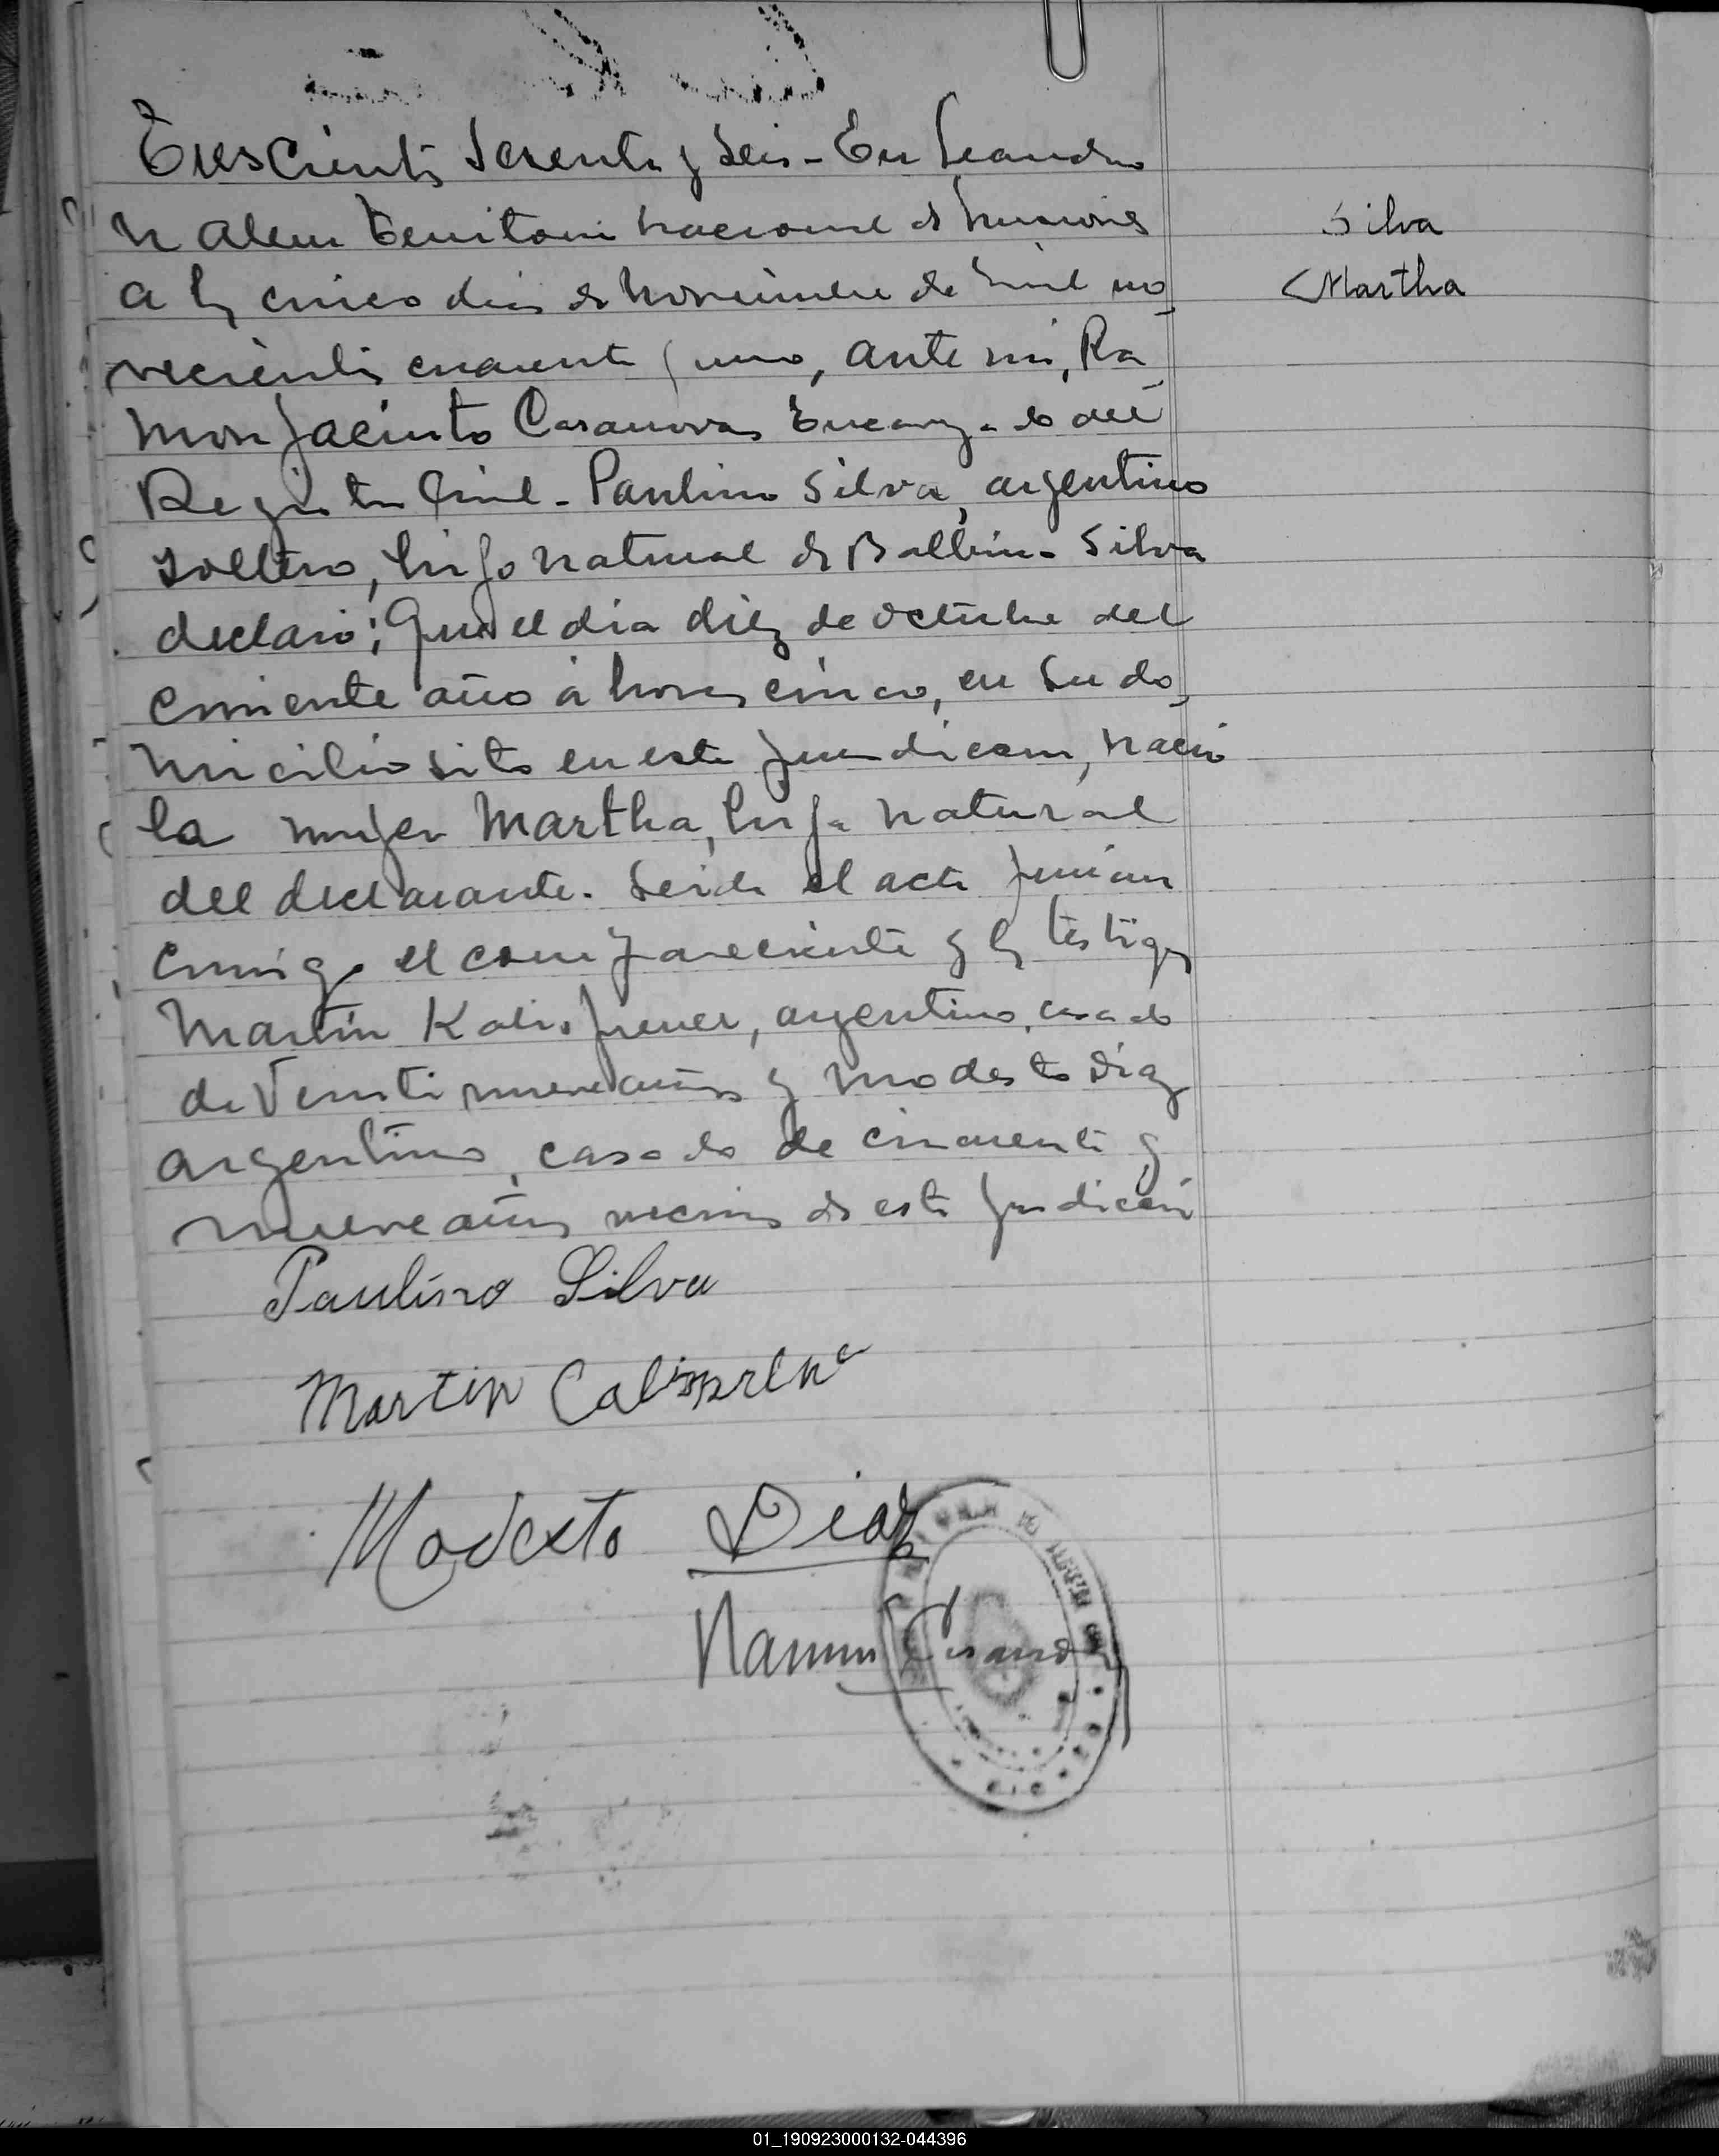 Trescientos Sesenta y Seis - En Leandro
N Alem Territorio Nacional de Misiones
Silva
a los cinco dias de Noviembre de mil no
Martha
vecientos cuarenta y uno, ante mi, Ra
mon Jacinto Casanovas Encargado del
Registro Civil - Paulino Silva, argentino
soltero, hijo natural de Balbina Silva
declaró: Que el dia diez de octubre del
corriente año a horas cinco, en su do
micilio sito en esta jurisdiccion, nació
la mujer Martha, hija natural
del declarante. Leida el acta firman
conmigo el compareciente y los testigos
Martin, argentino, casado
de Veinti nueve años y Modesto Diaz
argentino, casado de cincuenta y
nueve años vecinos de esta jurisdiccion
Paulino Silva
Martin
Modesto Diaz
Ramon Casanovas
01_190923000132-044396